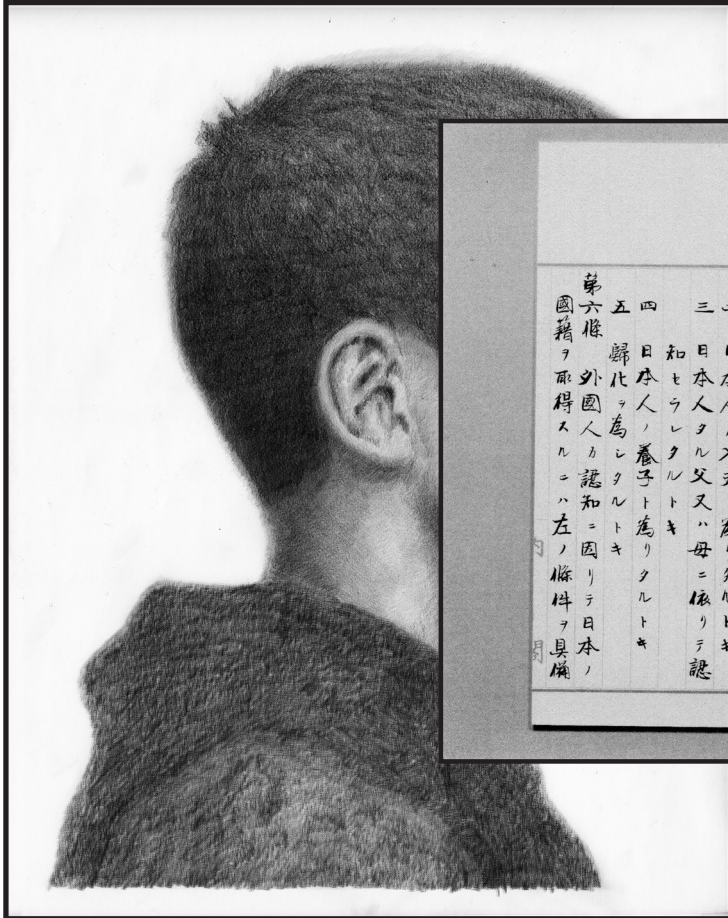 三 日本人タル父又ハ母ニ依リテ認
知セラレタルトキ
四 日本人ノ養子ト為リタルトキ
五 歸化ヲ為シタルトキ
第六條 外國人カ認知ニ因リテ日本ノ
國籍ヲ取得スルニハ左ノ條件ヲ具備
内閣